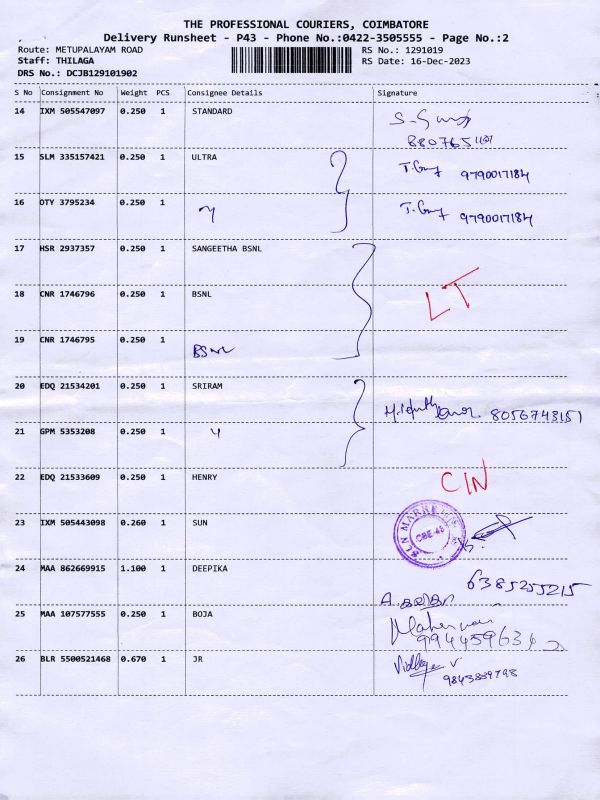 THE PROFESSIONAL COURIERS, COIMBATORE
Delivery Runsheet - P43 - Phone No.:0422-3505555 - Page No.:2
Route: METUPALAYAM ROAD RS No.: 1291019
Staff: THILAGA RS Date: 16-Dec-2023
DRS No.: DCJB129101902
S No Consignment No Weight PCS Consignee Details Signature
14 IXM 505547097 0.250 1 STANDARD
15 SLM 335157421 0.250 1 ULTRA 9790017184
16 OTY 3795234 0.250 1 9790017184
17 HSR 2937357 0.250 1 SANGEETHA BSNL
18 CNR 1746796 0.250 1 BSNL LT
19 CNR 1746795 0.250 1 BSNL
20 EDQ 21534201 0.250 1 SRIRAM 8056743151
21 GPM 5353208 0.250 1
22 EDQ 21533609 0.250 1 HENRY CIN
23 IXM 505443098 0.260 1 SUN
24 MAA 862669915 1.100 1 DEEPIKA 6385255215
25 MAA 107577555 0.250 1 BOJA
26 BLR 5500521468 0.670 1 JR